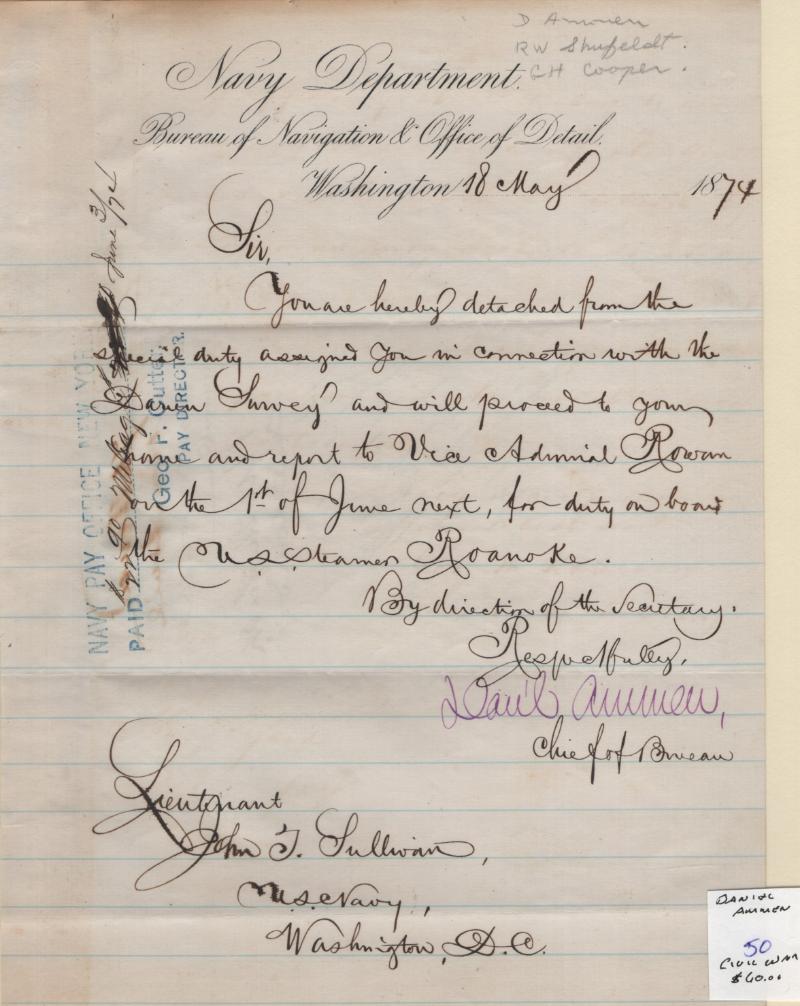 D Ammen
RW Shufeldt.
GH Cooper.
Navy Department.
Bureau of Navigation & Office of Detail.
Washington 18 May 1874
Sir,
You are hereby detached from the
special duty assigned you in connection with the
"Darien Survey" and will proceed to your
home and report to Vice Admiral Rowan
on the 1st of June next, for duty on board
the U.S. Steamer Roanoke.
By direction of the Secretary.
Respectfully,
Dan'l Ammen,
Chief of Bureau
Lieutenant
John T. Sullivan,
U.S. Navy,
Washington, D.C.
NAVY PAY OFFICE, NEW YOR
PAID June 3/74
Geo. F. Cutter
PAY DIRECTOR.
DANIEL
AMMEN
50
CIVIL WAR
$60.00